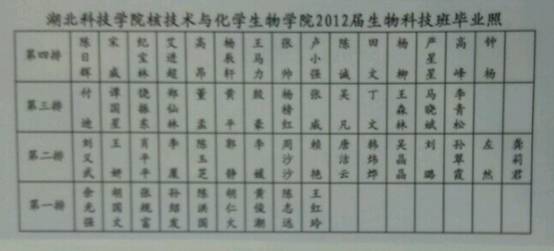 湖北科技学院核技术与化学生物学院2012届生物科技班毕业照
第四排 陈日辉 宋威 纪宝林 艾进超 高昂 杨辰轩 王马力 张帅 卢小强 陈诚 田文 杨柳 严星星 高峰 钟杨
第三排 付迪 谭国星 饶振东 郑仙林 董孟 黄平 殷豪 杨榜红 张威 吴凡 丁文 王森林 马晓斌 李青松
第二排 刘义武 王妍 肖平平 李厦 陈玉芝 郭静 李媛 周沙沙 赖艳 唐洁云 韩炜烨 吴晶晶 刘璐 孙翠霞 左然 龚莉君
第一排 余光强 胡国文 张规富 孙绍发 陈洪国 胡仁火 黄俊潮 陈志远 王红玲